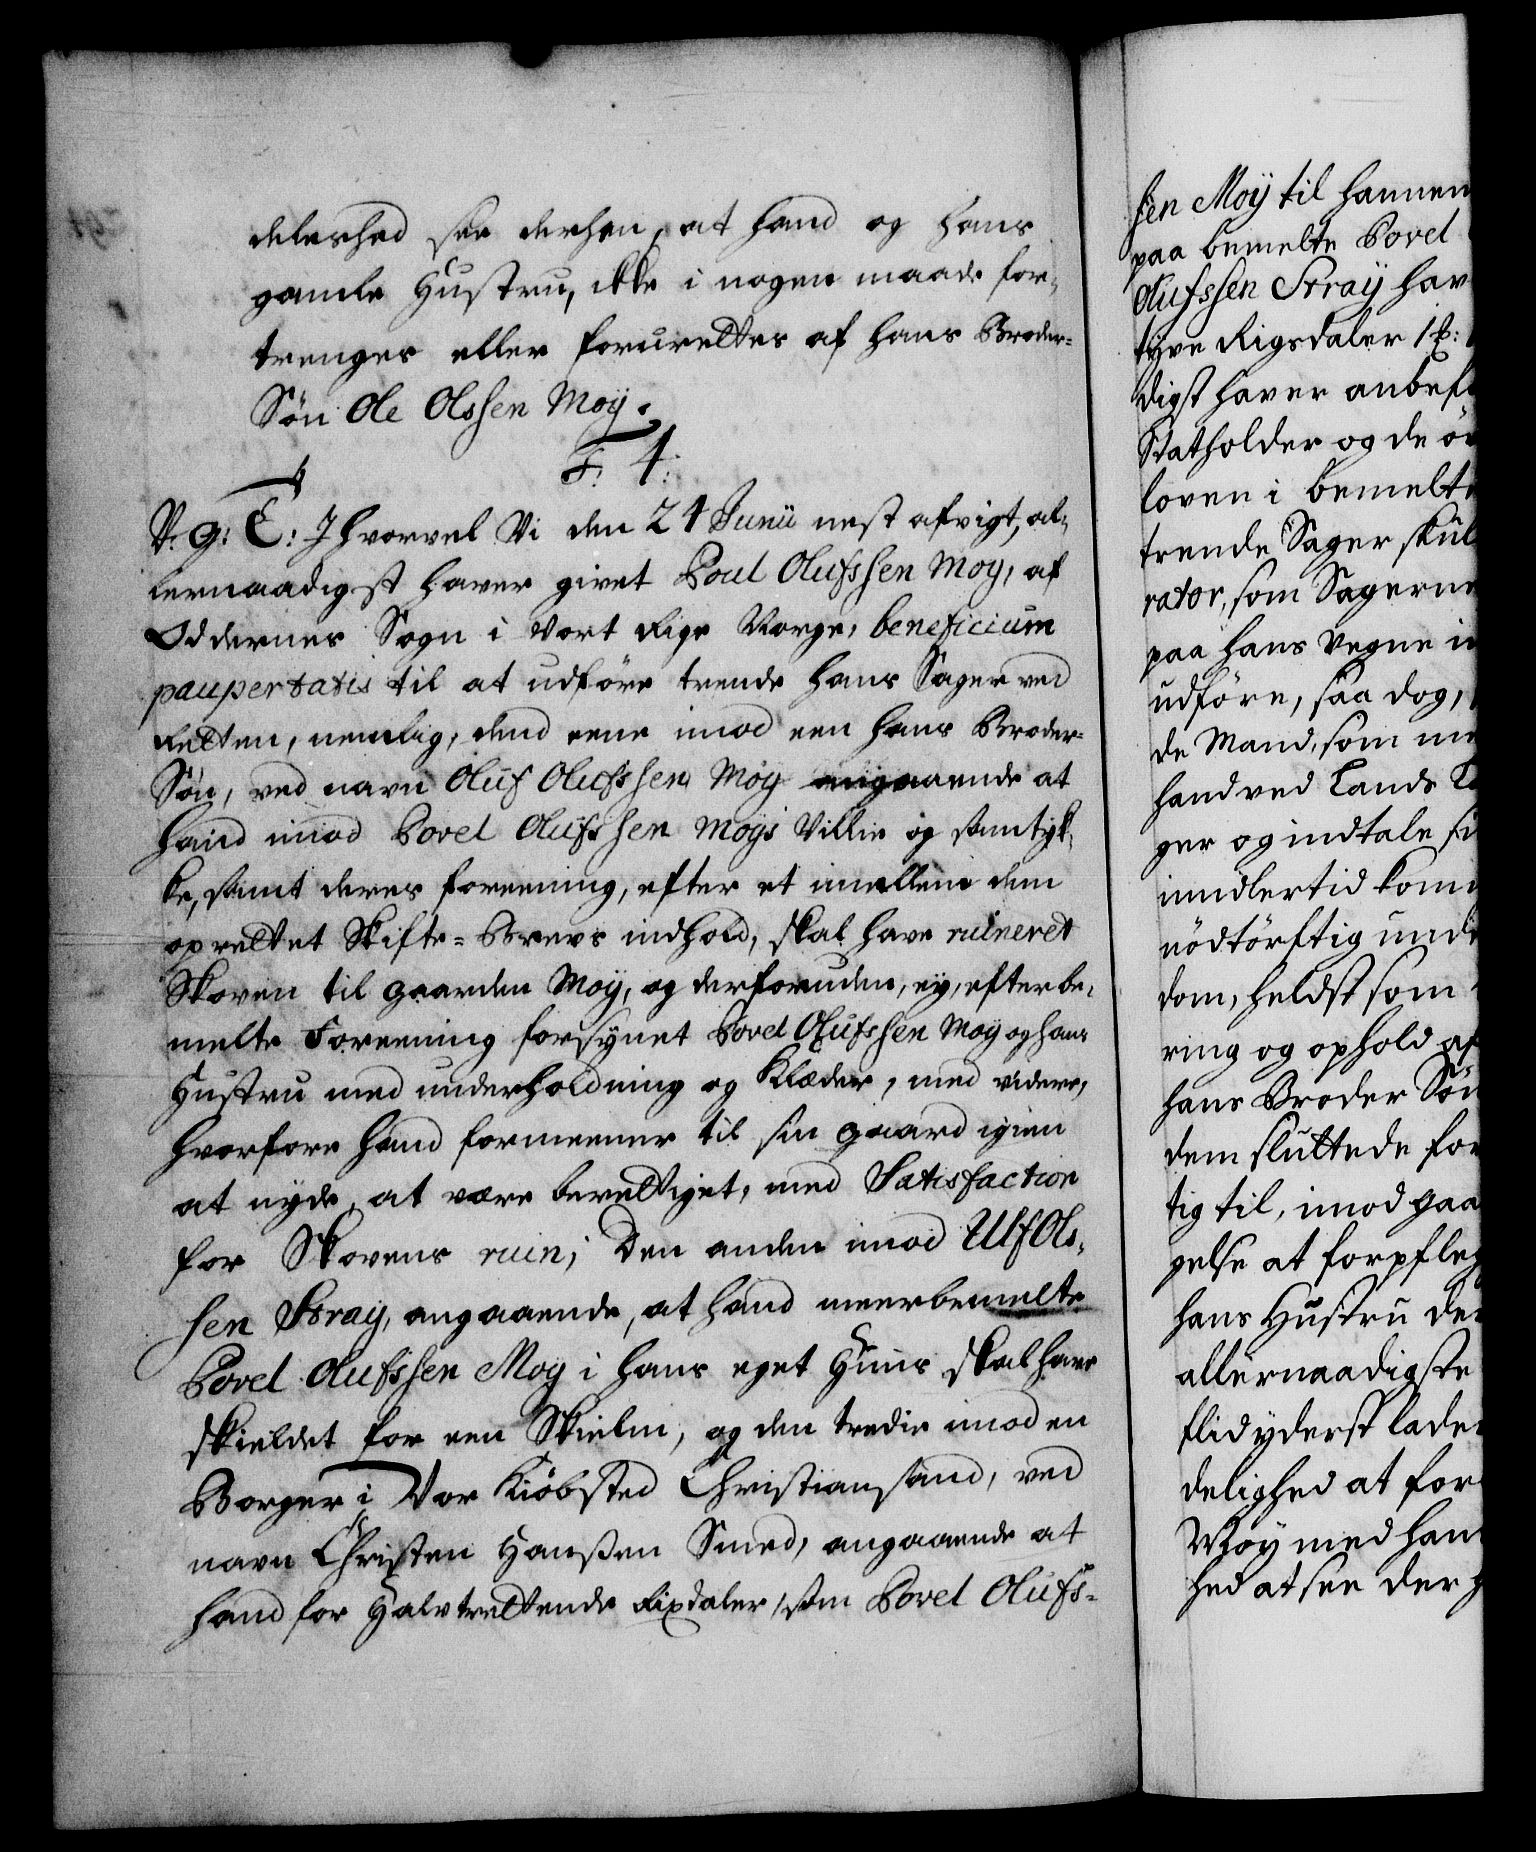 delerhed see derhen, at hand og hans
gamle Hustru, ikke i nogen maade for-
trenges eller forurettes af hans Broder-
Søn Ole Olssen Moÿ.
F. 4.
V. G: T: I hvorvel Vi den 24 Junii nest afvigt, al-
lernaadigst haver givet Poul Olufssen Moy, af
Oddernes Sogn i vort Rige Norge, beneficium
paupertatis til at udföre trende hans Sager ved
Retten, nemlig, dend eene imod een hans Broder-
Søn, ved navn Oluf Olufssen Moy angaaende at
hand imod Povel Olufssen Moÿs Villie og samtyk-
ke, samt deres foreening, efter et imellem dem
oprettet Skifte-Brevs indhold, skal have ruineret
Skoven til gaarden Moy, og derforuden, ey, efter be-
melte Foreening forsynet Povel Olufssen Moÿ og hans
Hustru med underholdning og Klæder, med videre,
hvorfore hand formeener til sin gaard igien
at nyde, at være berettiget, med Satisfaction
for Skovens ruin; Den anden imod Ulf Ols-
sen Straÿ, angaaende, at hand meerbemelte
Povel Olufssen Moÿ i hans eget Huus skal have
skieldet for een Skielm, og den tredie imod en
Borger i Vor Kiöbsted Christiansand, ved
navn Christen Hanssen Smed, angaaende at
hand for Halvtrettende Rixdaler, som Povel Olufs-
sen Moÿ til hannem
paa bemelte Povel
Olufssen Straÿ hav
tyve Rigsdaler 1 ℔:
digst haver anbef
Statholder og de ö
loven i bemelte
trende Sager skul
rator, som Sagerne
paa hans Vegne i
udföre, saa dog,
de Mand, som me
hand ved Lands
ger og indtale si
imidlertid kom
nödtörftig unde
dom, heldst som
ring og ophold af
hans Broder Sön
dem sluttede for
tig til, imod gaa
gelse at forpfleg
hans Hustru de
allernaadigste
flid yderst lade
delighed at for
Moÿ med han
hed at see der